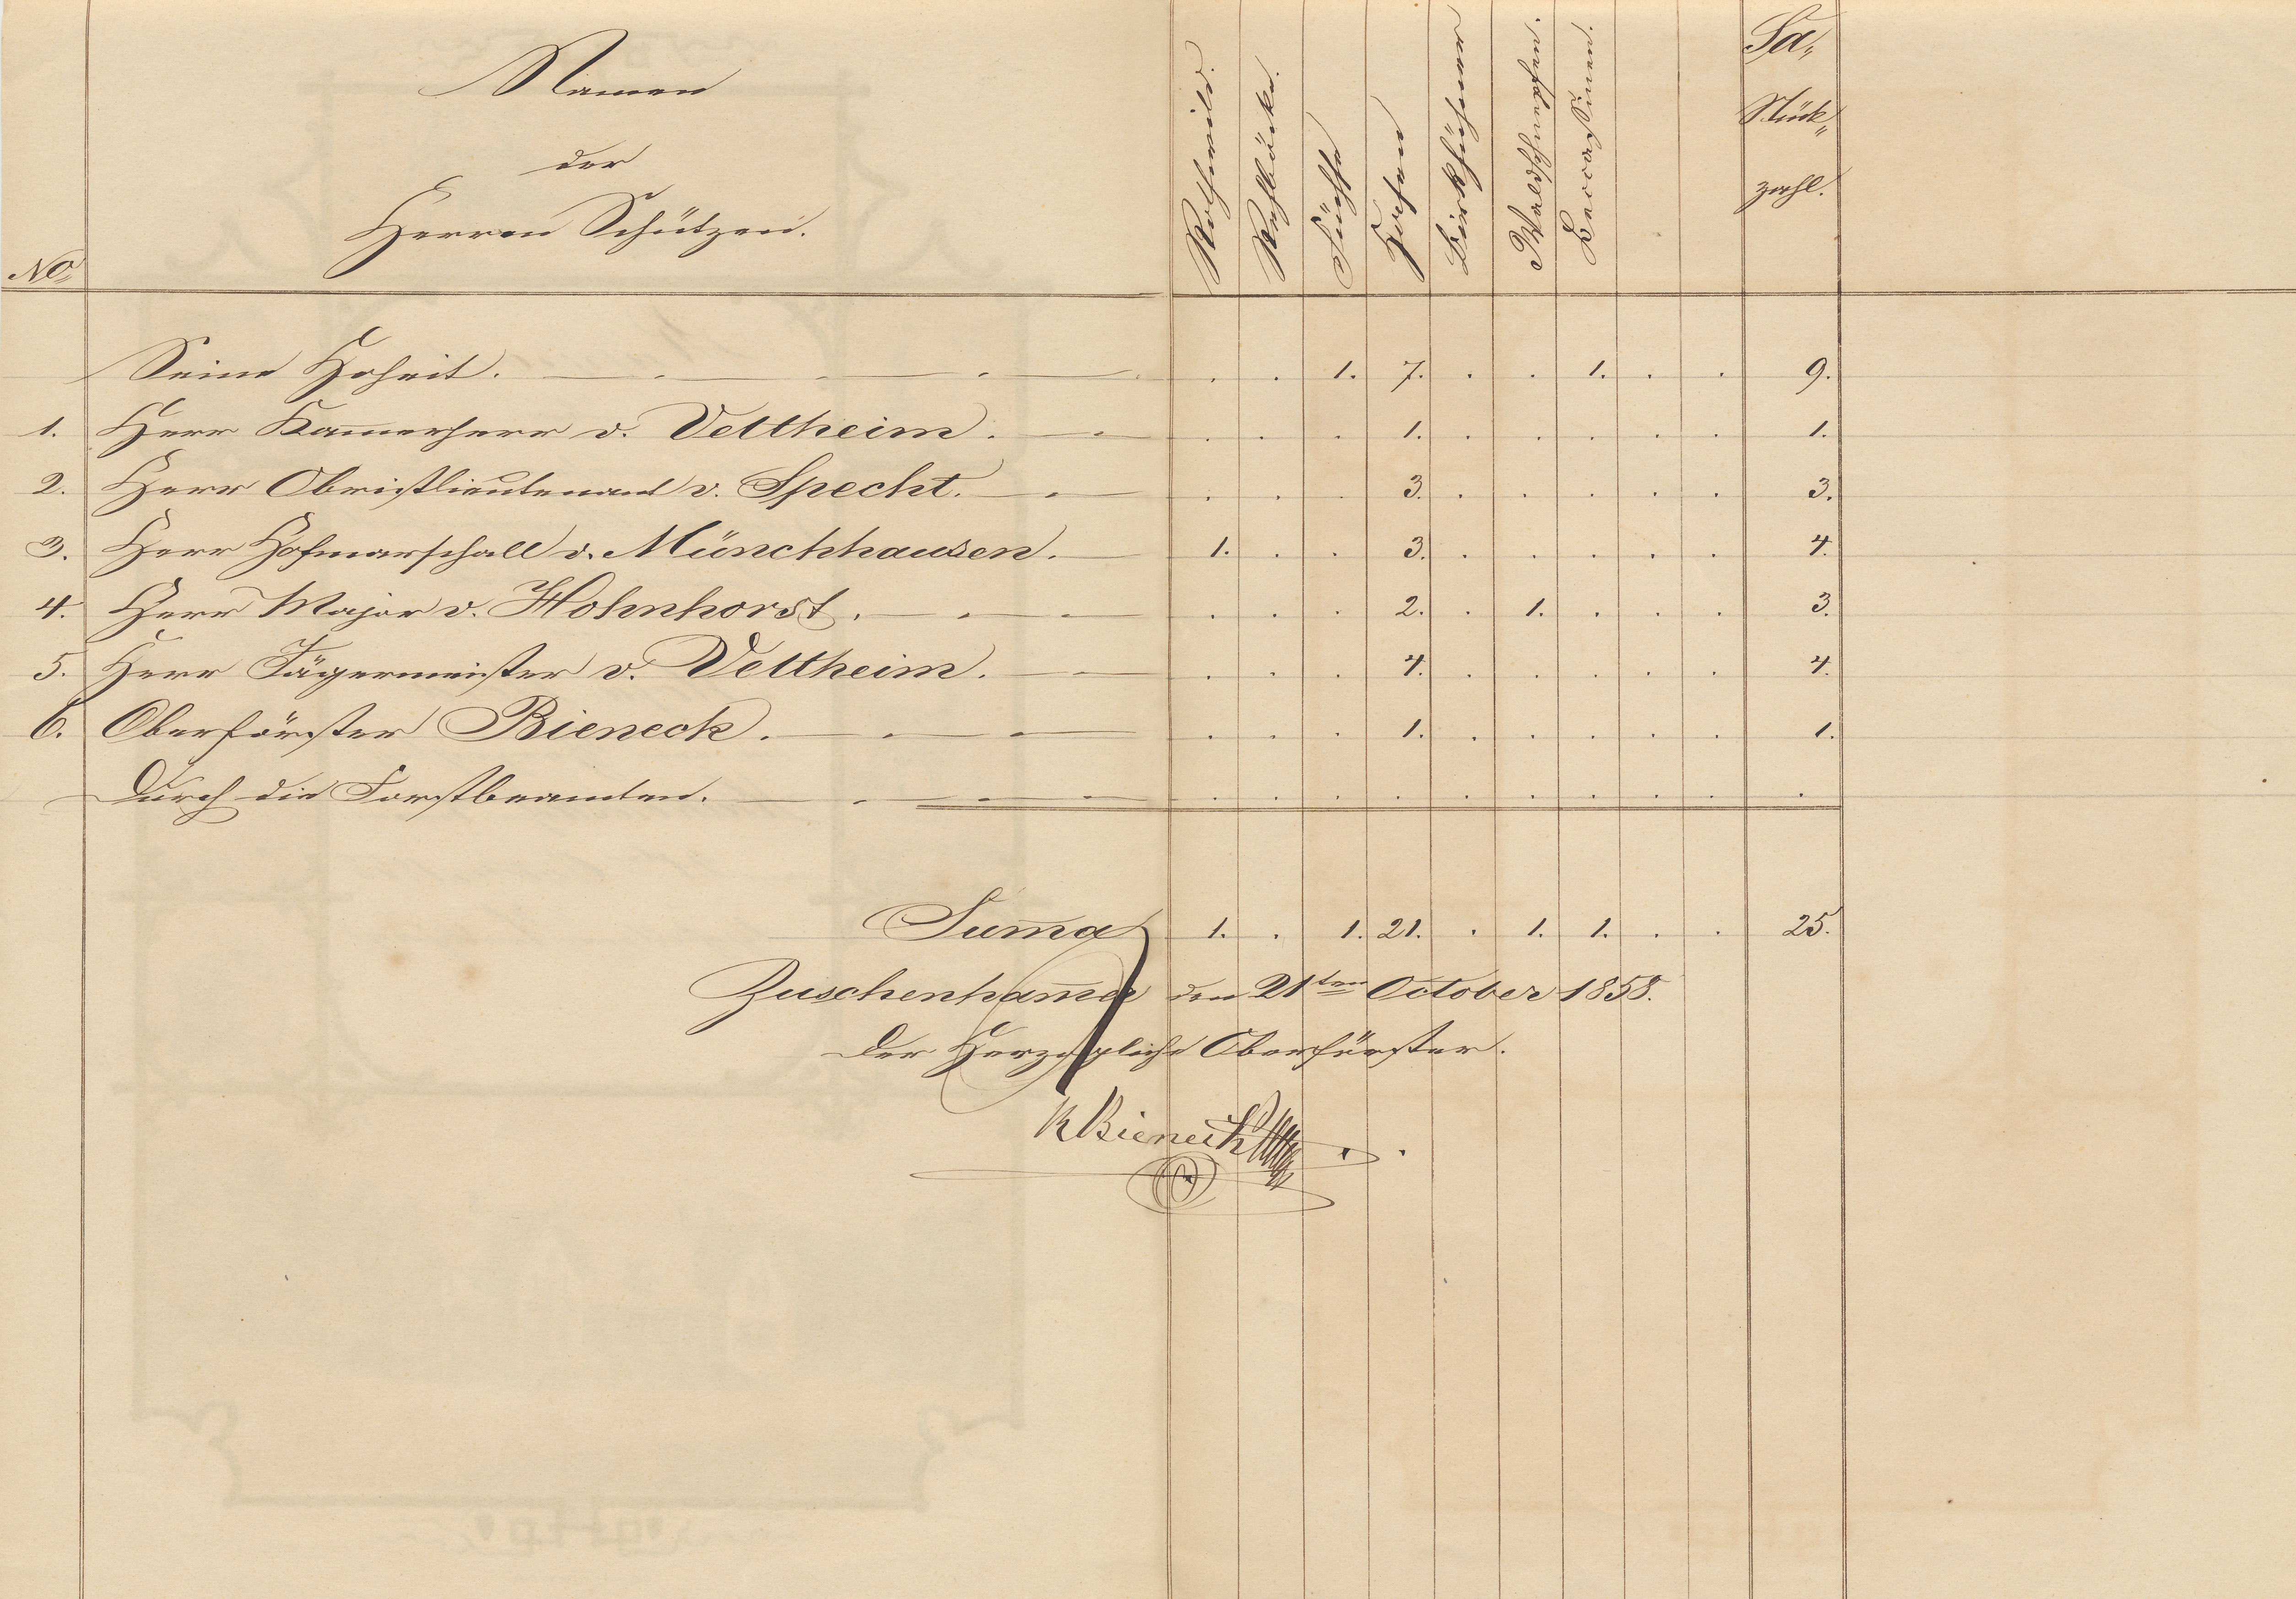 Namen
der
Herren Schützen.
No.
Rothwild.
Rehböcke.
Füchse
Hasen
Birkhühner
Waldschnepfen.
Beccassinen.
Sa,,
Stück,,
zahl.
Seine Hoheit. . . 1. 7. . . 1. . . 9.
1. Herr Kam̄erherr v. Veltheim. . . . 1. . . . . . 1.
2. Herr Obristlieutenant v. Specht. . . . 3. . . . . . 3.
3. Herr Hofmarschall v. Münchhausen. 1. . . 3. . . . . . 4.
4. Herr Major v. Hohnhorst. . . . 2. . 1. . . . 3.
5. Herr Jägermeister v. Veltheim. . . . 4. . . . . . 4.
6. Oberförster Bieneck. . . . 1. . . . . . 1.
Durch die Forstbeamten. . . . . . . . . . .
Sum̄a 1. . 1. 21. . 1. 1. . . 25.
den 21ten October 1858.
Der Herzogliche Oberförster.
Bieneck